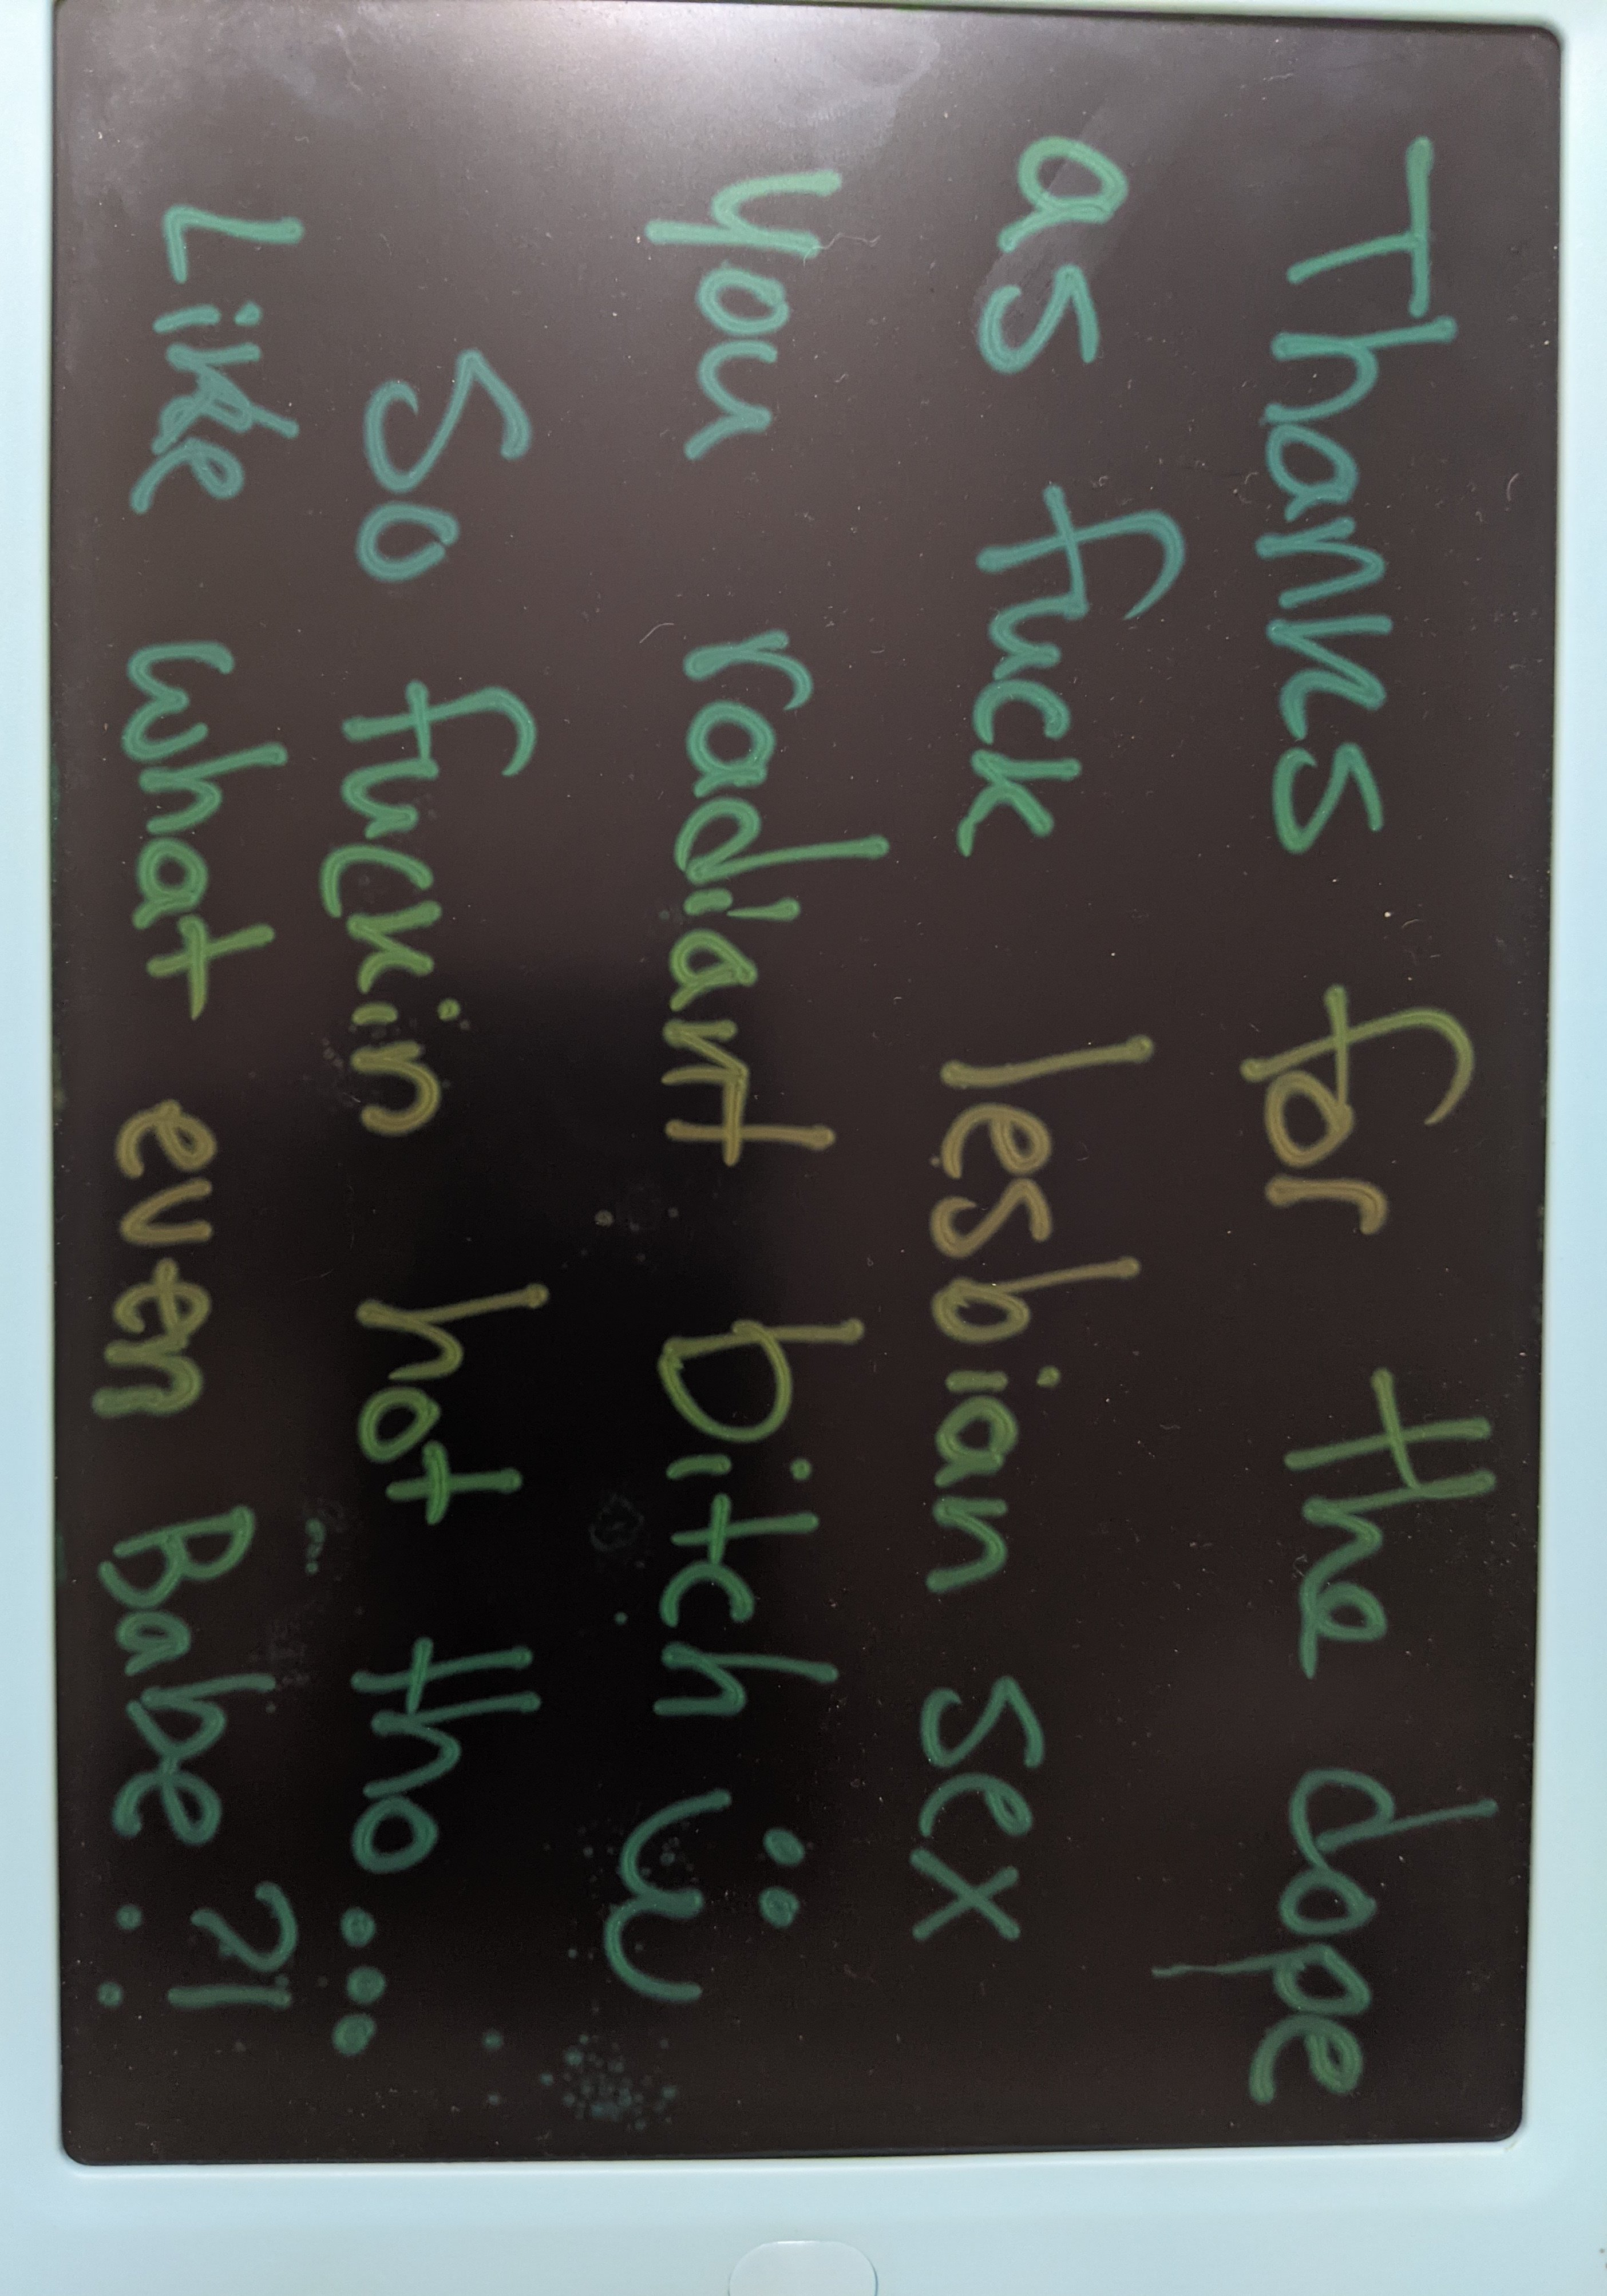 Thanks for the dope
as fuck lesbian sex
you radiant bitch ü
So fuckin hot tho...
Like what even Babe?!